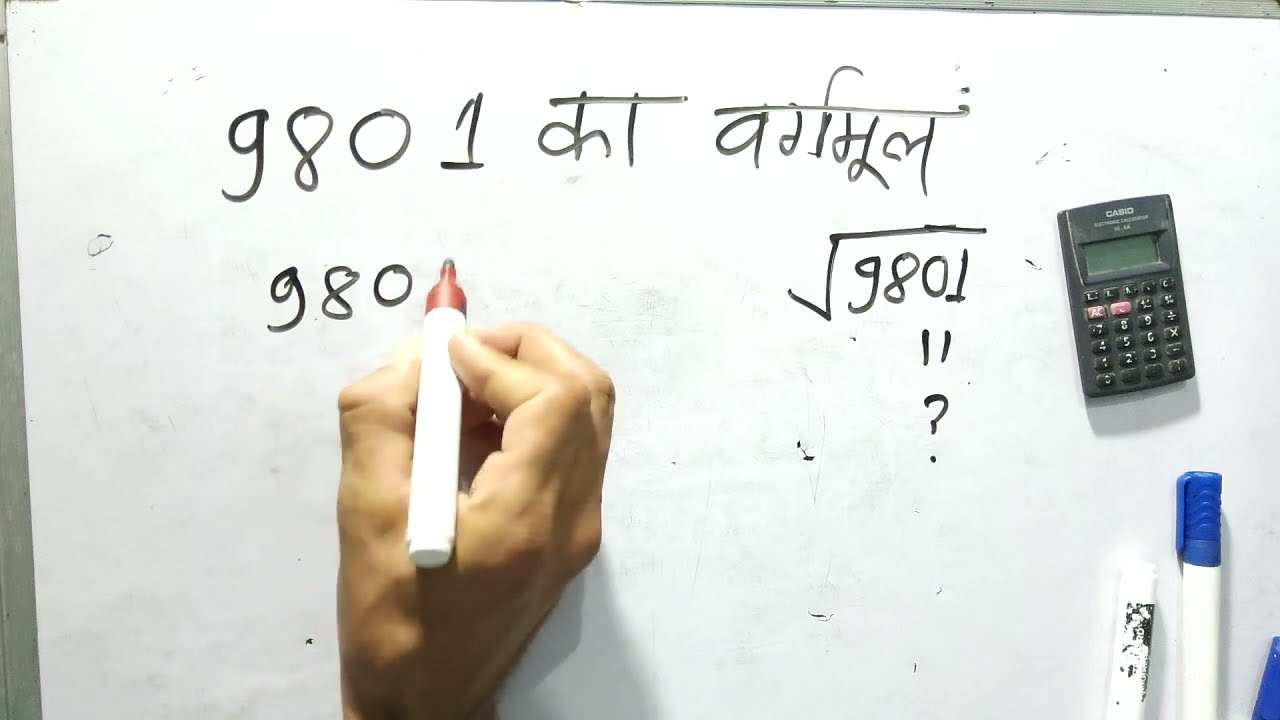 9801 का वर्गमूलं
980
√9801
=
?
CASIO
ELECTRONIC CALCULATOR
AC C
7 8 9 ÷
4 5 6 X
1 2 3 -
0